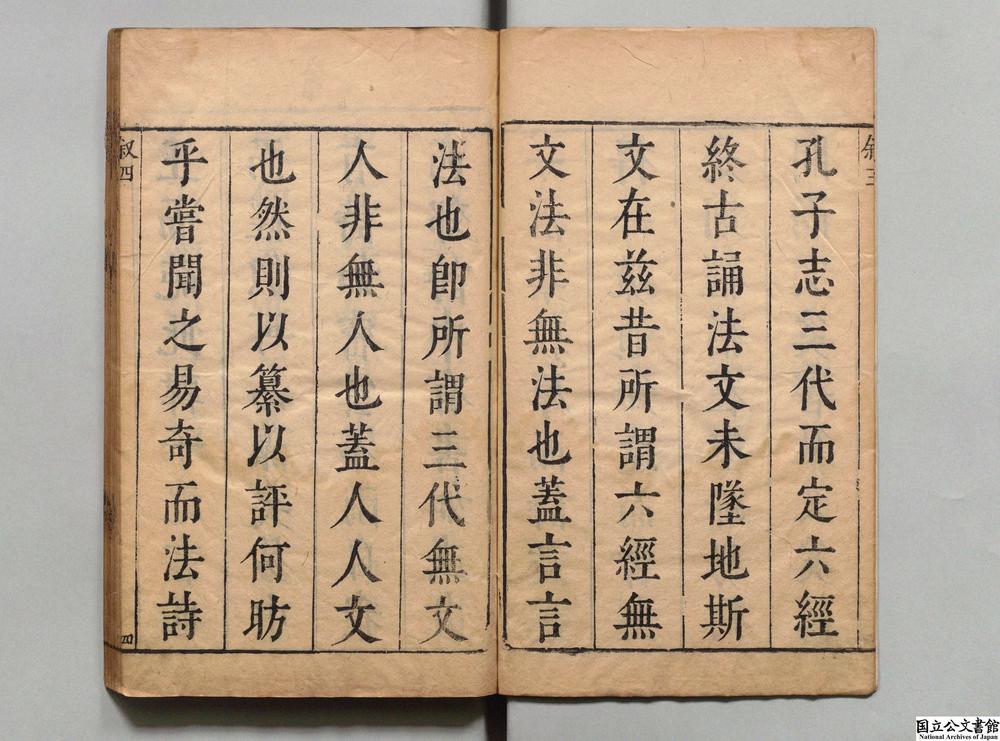 叙三
孔子志三代而定六經
終古誦法文未墜地斯
文在兹昔所謂六經無
文法非無法也蓋言言
法也卽所謂三代無文
人非無人也蓋人人文
也然則以纂以評何昉
乎嘗聞之易奇而法詩
叙四
四
国立公文書館
National Archives of Japan